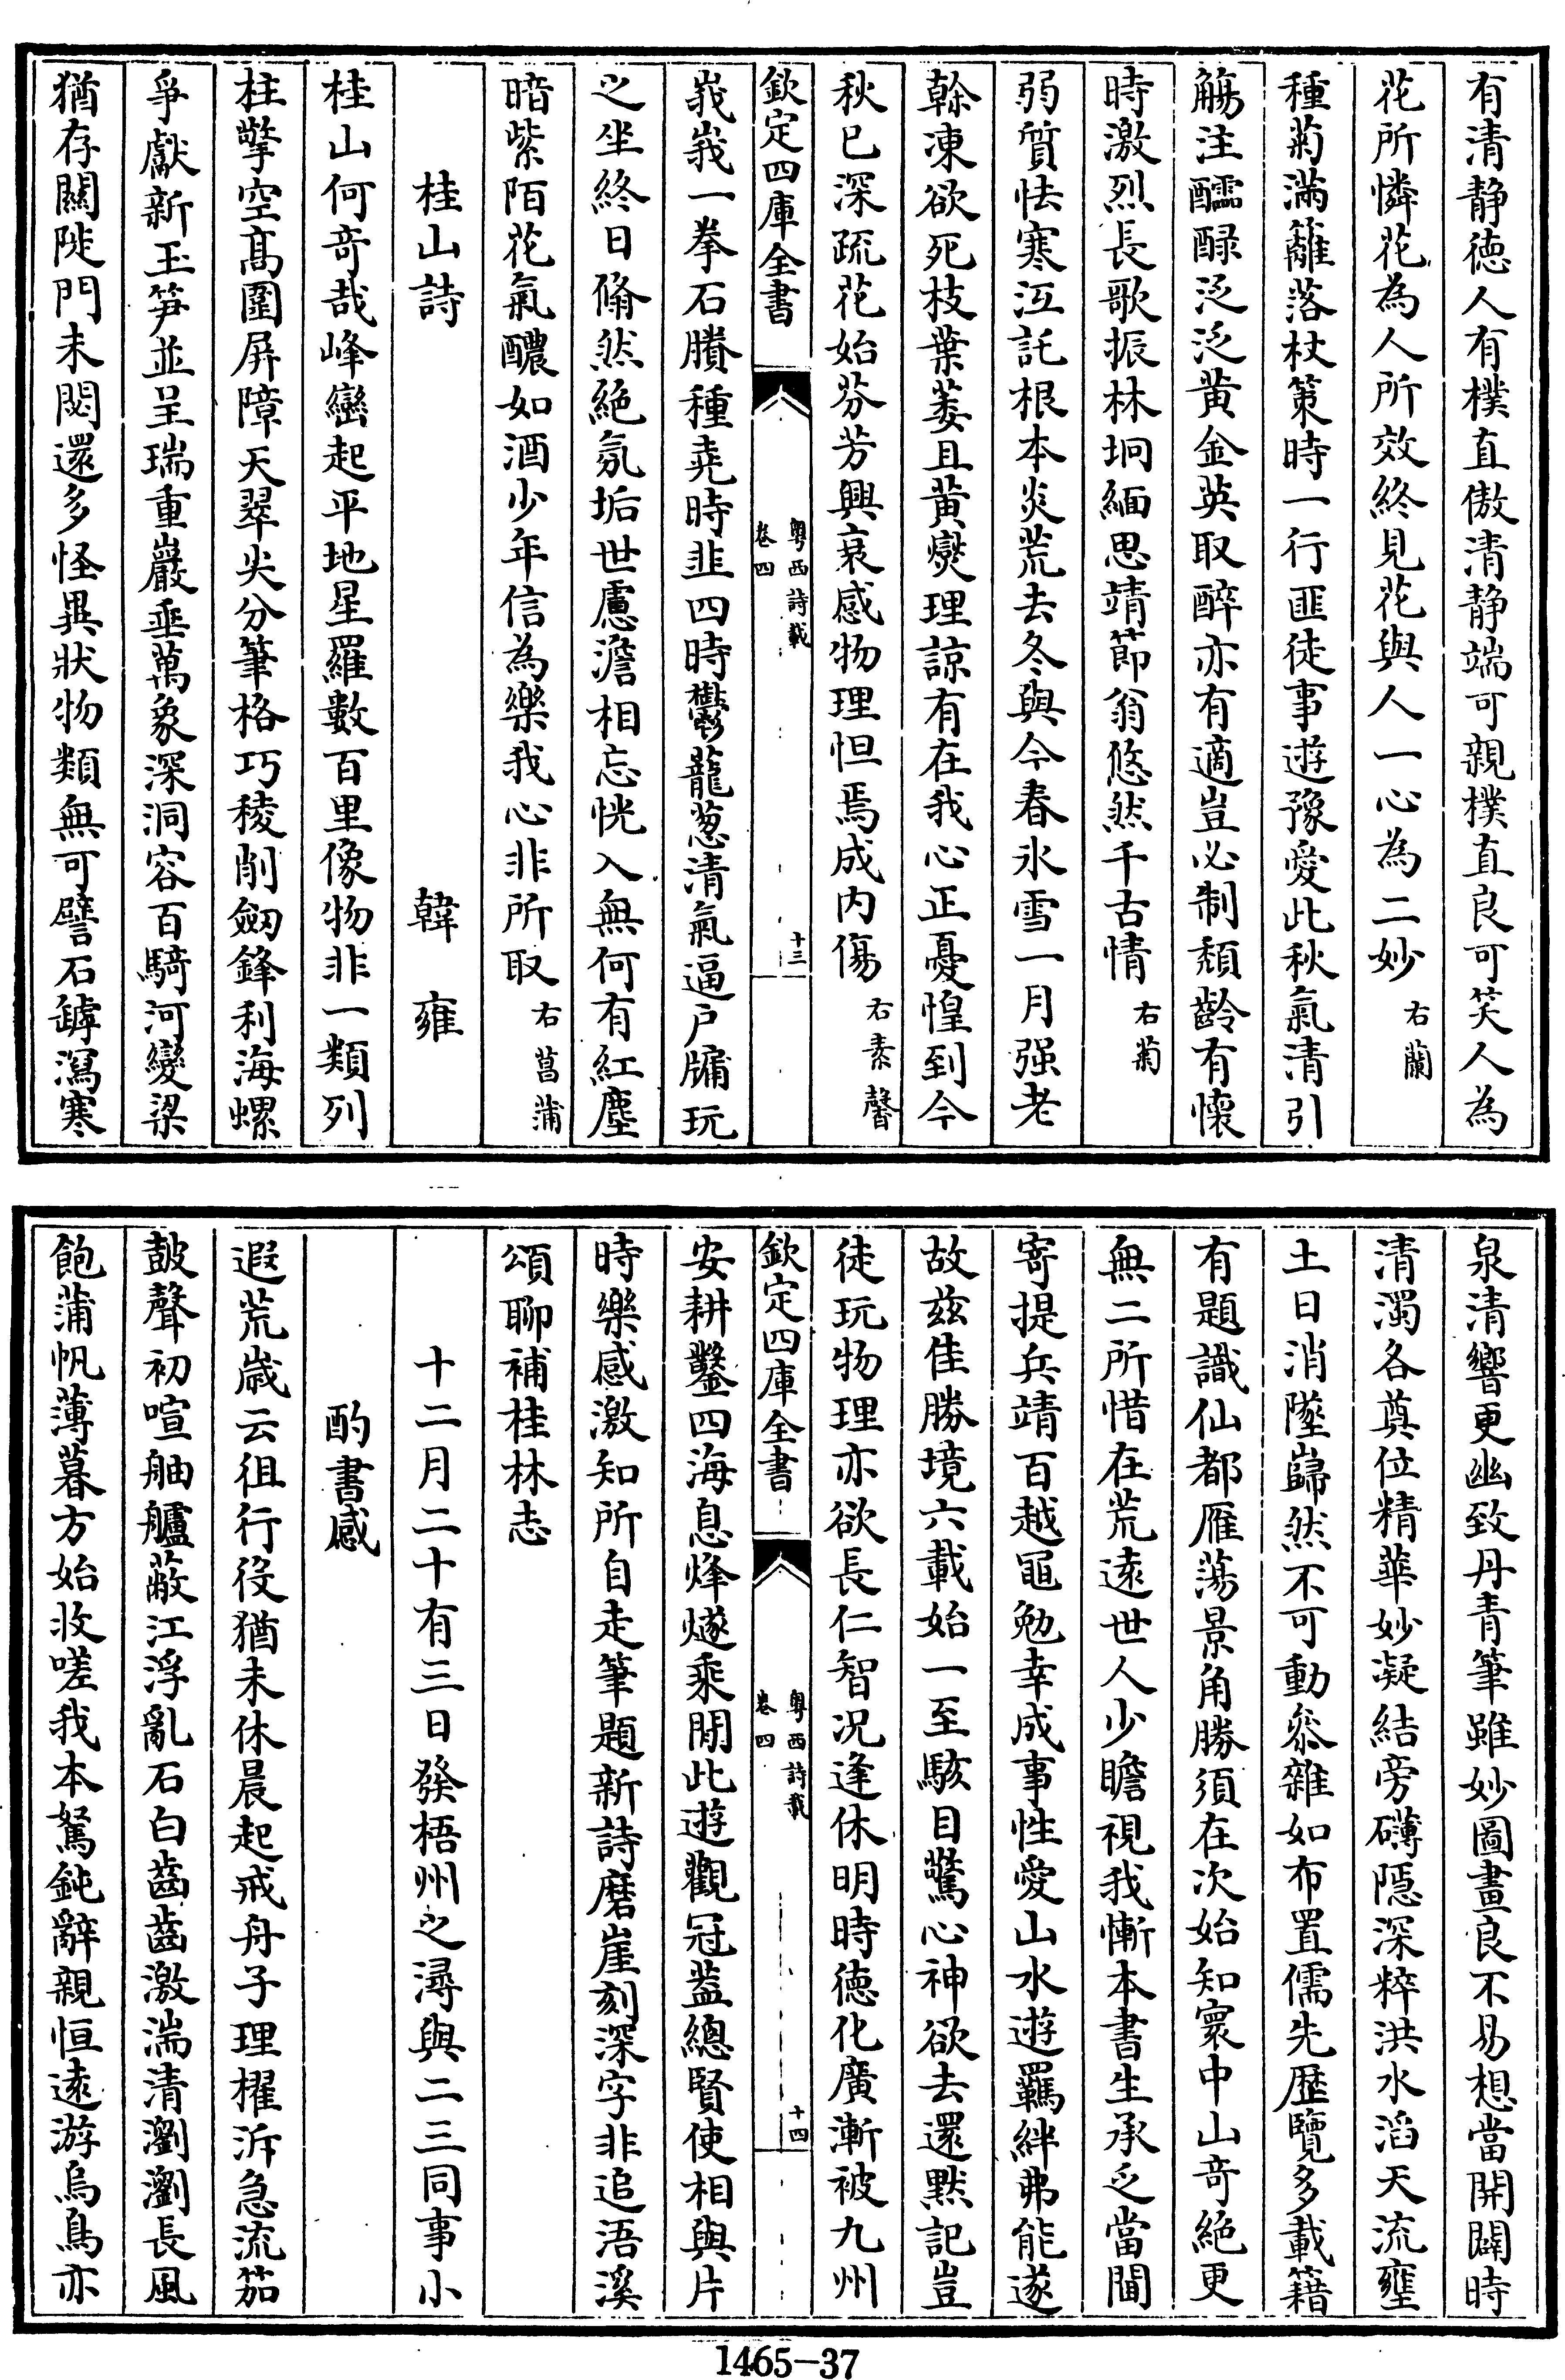 有清静徳人有樸直傲清静端可親樸直良可笑人為
花所憐花為人所效終見花與人一心為二妙 右蘭
種菊滿籬落杖䇿時一行匪徒事遊豫愛此秋氣清引
觴注醽醁泛泛黄金英取醉亦有適豈必制頽齡有懷
時激烈長歌振林坰緬思靖節翁悠然千古情 右菊
弱質怯寒沍託根本炎荒去冬與今春氷雪一月强老
榦凍欲死枝葉萎且黄爕理諒有在我心正憂惶到今
秋已深疏花始芬芳興衰感物理怛焉成内傷 右素馨
欽定四庫全書 粤西詩載 卷四 十三
峩峩一拳石賸種堯時韭四時鬱蘢葱清氣逼户牖玩
之坐終日翛然絶氛垢世慮澹相忘恍入無何有紅塵
暗紫陌花氣醲如酒少年信為樂我心非所取 右菖蒲
桂山詩 韓雍
桂山何竒哉峰巒起平地星羅數百里像物非一類列
柱擎空髙圍屏障天翠尖分筆格巧稜削劒鋒利海螺
爭獻新玉笋並呈瑞重巖垂萬象深洞容百騎河變梁
猶存關陡門未閟還多怪異狀物類無可譬石罅瀉寒
泉清響更幽致丹青筆雖妙圖畫良不易想當開闢時
清濁各奠位精華妙凝結旁礴隠深粹洪水滔天流壅
土日消墜巋然不可動叅雜如布置儒先歴覽多載籍
有題識仙都雁蕩景角勝須在次始知寰中山竒絶更
無二所惜在荒逺世人少瞻視我慚本書生承乏當閫
寄提兵靖百越黽勉幸成事性愛山水遊羈絆弗能遂
故兹佳勝境六載始一至駭目驚心神欲去還黙記豈
徒玩物理亦欲長仁智况逢休明時徳化廣漸被九州
欽定四庫全書 粤西詩載 卷四 十四
安耕鑿四海息烽燧乘閒此遊觀冠葢總賢使相與片
時樂感激知所自走筆題新詩磨崖刻深字非追浯溪
頌聊補桂林志
十二月二十有三日發梧州之潯與二三同事小
酌書感
遐荒嵗云徂行役猶未休晨起戒舟子理櫂泝急流笳
鼓聲初喧舳艫蔽江浮亂石白齒齒激湍清瀏瀏長風
飽蒲帆薄暮方始收嗟我本駑鈍辭親恒逺游烏鳥亦
1465-37